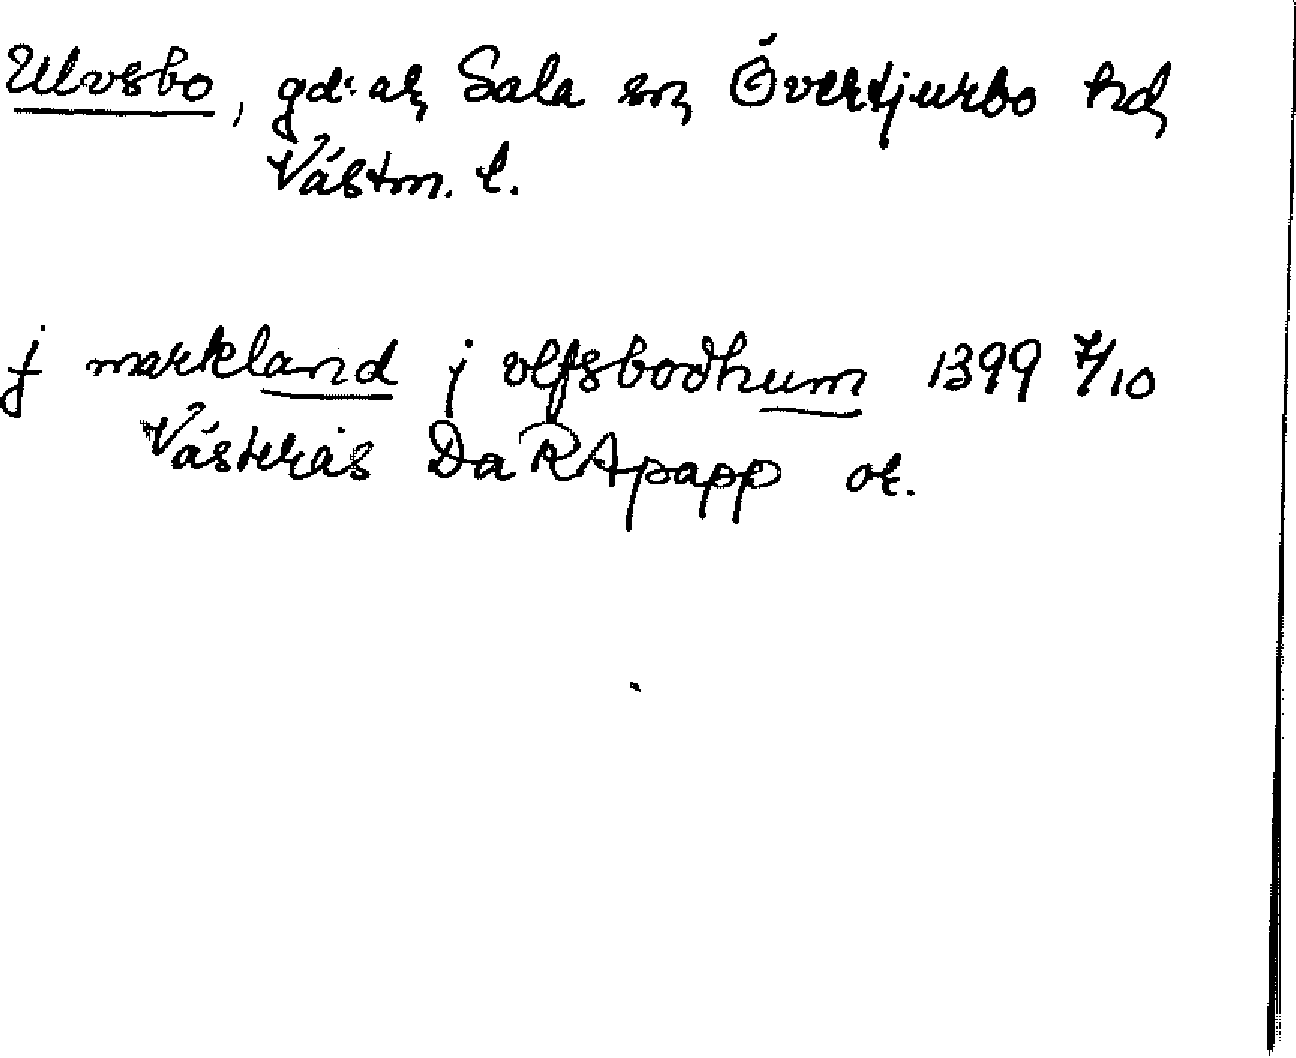 Ulvsbo, gdar, Sala sn, Övertjurbo hd,
Västm. l.
j markland j vlfsbodhum 1399 7/10
Västerås Da RApapp or.